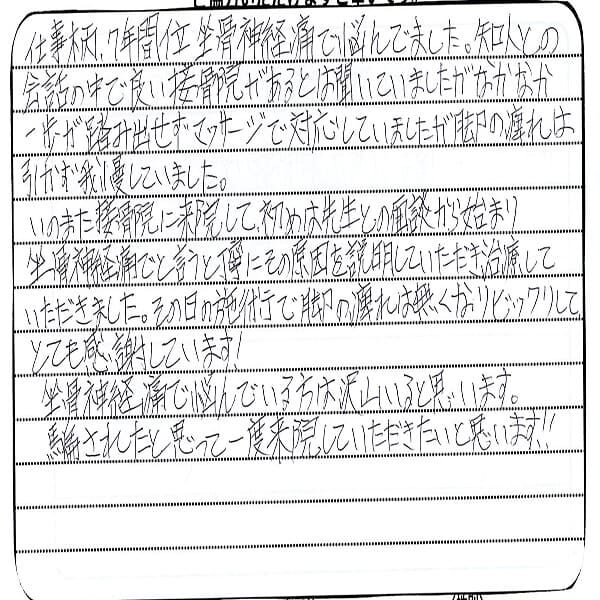 仕事柄、7年間位坐骨神経痛で悩んでました。知人との
会話の中で良い接骨院があるとは聞いていましたがなかなか
一歩が踏み出せずマッサージで対応していましたが脚の痺れは
引かず我慢していました。
いのまた接骨院に来院して、初めは先生との面談から始まり
坐骨神経痛でと言うと、僕にその原因を説明していただき治療して
いただきました。その日の施術で脚の痺れは無くなりビックリして、
とても感謝しています!
坐骨神経痛で悩んでいる方は沢山いると思います。
騙されたと思って一度来院していただきたいと思います!!